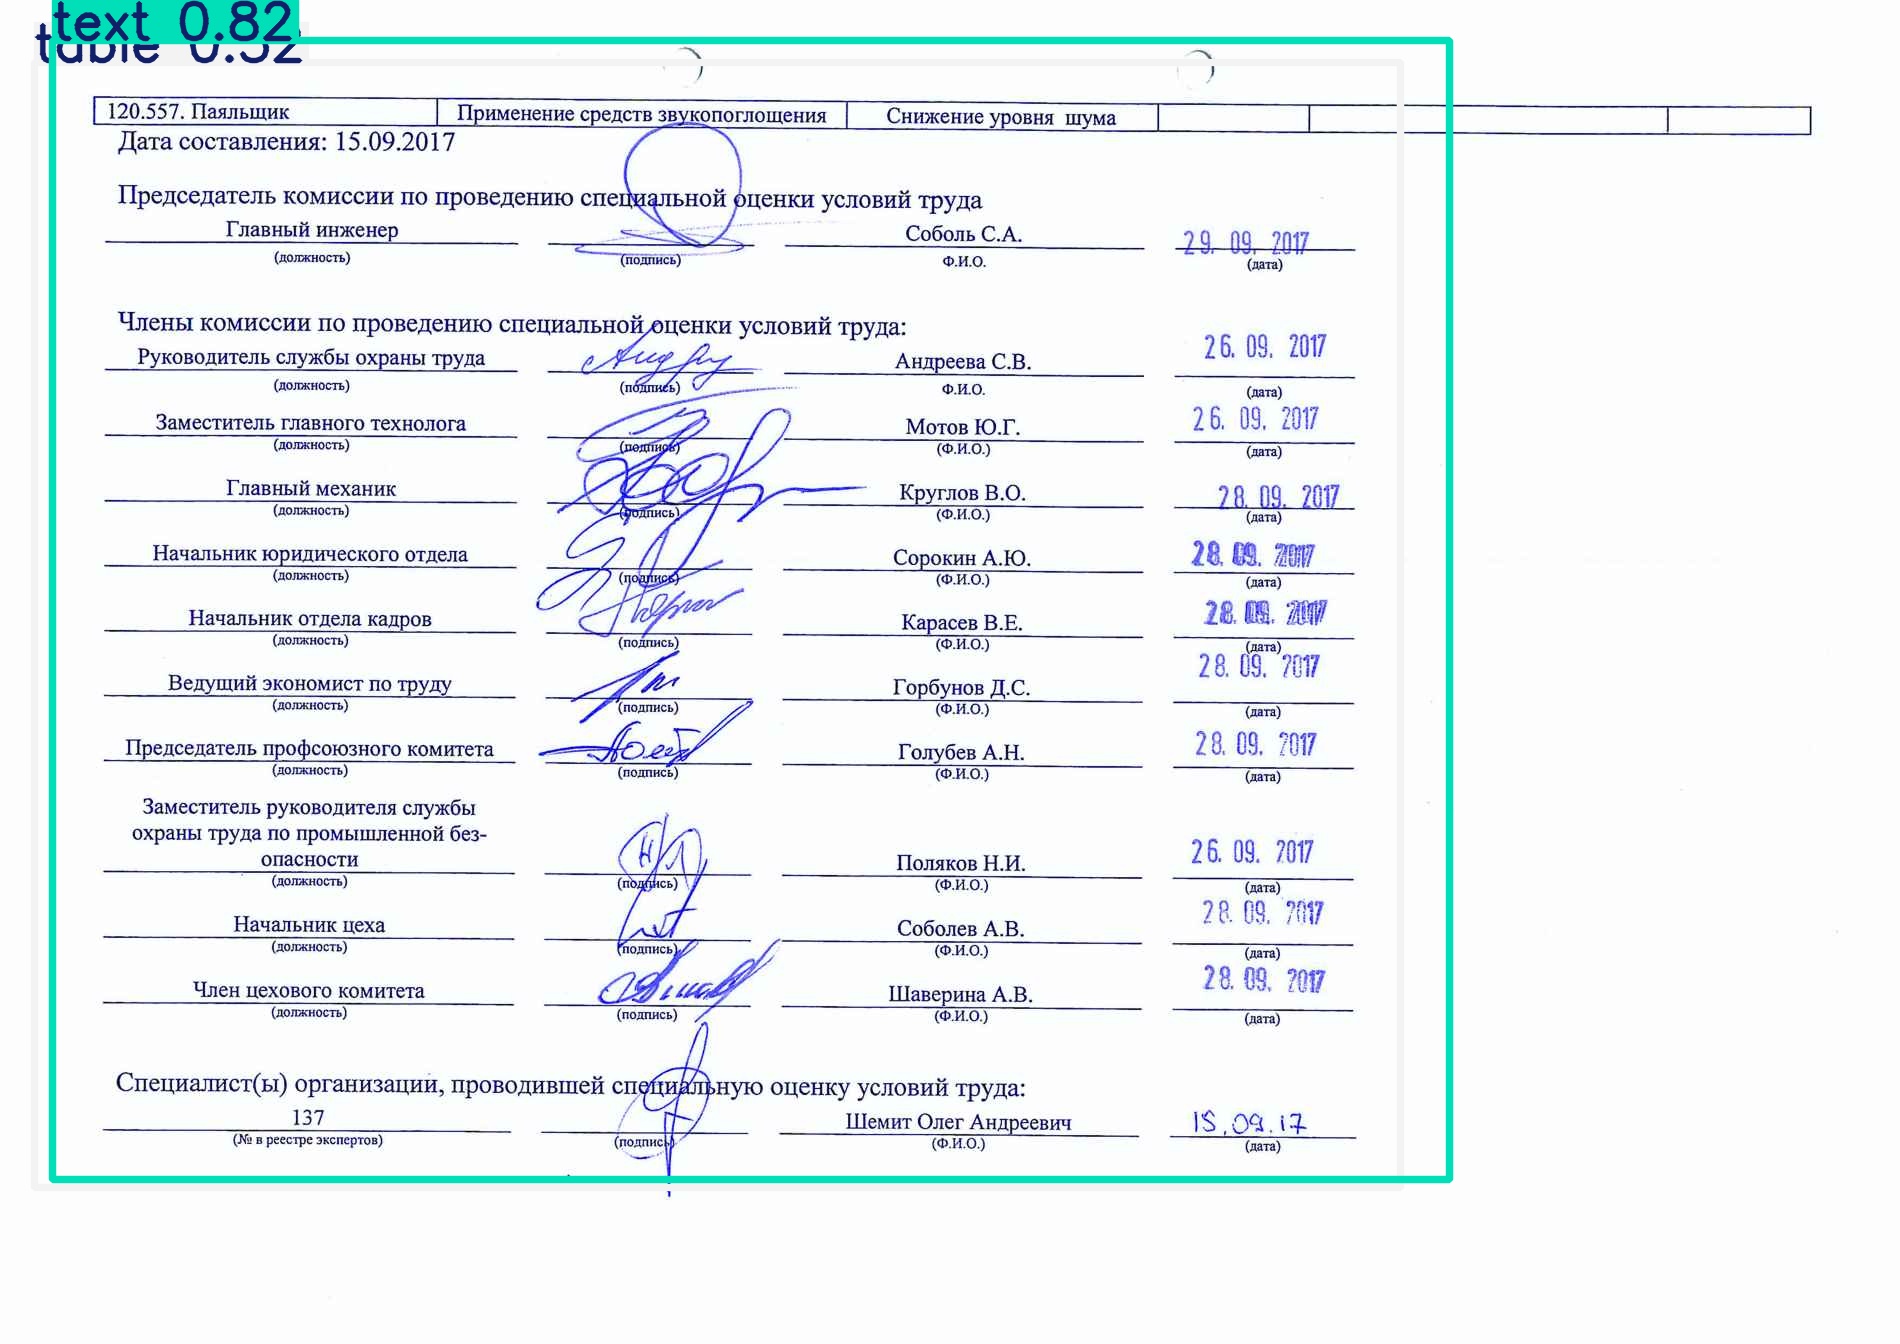 text 0.82
table 0.52
120.557. Паяльщик Применение средств звукопоглощения Снижение уровня шума
Дата составления: 15.09.2017
Председатель комиссии по проведению специальной оценки условий труда
Главный инженер Соболь С.А. 29. 09. 2017
(должность) (подпись) Ф.И.О. (дата)
Члены комиссии по проведению специальной оценки условий труда:
Руководитель службы охраны труда Андреева С.В. 26. 09. 2017
(должность) (подпись) Ф.И.О. (дата)
Заместитель главного технолога Мотов Ю.Г. 26. 09. 2017
(должность) (подпись) (Ф.И.О.) (дата)
Главный механик Круглов В.О. 28. 09. 2017
(должность) (подпись) (Ф.И.О.) (дата)
Начальник юридического отдела Сорокин А.Ю. 28. 09. 2017
(должность) (подпись) (Ф.И.О.) (дата)
Начальник отдела кадров Карасев В.Е. 28. 09. 2017
(должность) (подпись) (Ф.И.О.) (дата)
Ведущий экономист по труду Горбунов Д.С. 28. 09. 2017
(должность) (подпись) (Ф.И.О.) (дата)
Председатель профсоюзного комитета Голубев А.Н. 28. 09. 2017
(должность) (подпись) (Ф.И.О.) (дата)
Заместитель руководителя службы
охраны труда по промышленной без-
опасности Поляков Н.И. 26. 09. 2017
(должность) (подпись) (Ф.И.О.) (дата)
Начальник цеха Соболев А.В. 28. 09. 2017
(должность) (подпись) (Ф.И.О.) (дата)
Член цехового комитета Шаверина А.В. 28. 09. 2017
(должность) (подпись) (Ф.И.О.) (дата)
Специалист(ы) организации, проводившей специальную оценку условий труда:
137 Шемит Олег Андреевич 15.09.17
(№ в реестре экспертов) (подпись) (Ф.И.О.) (дата)